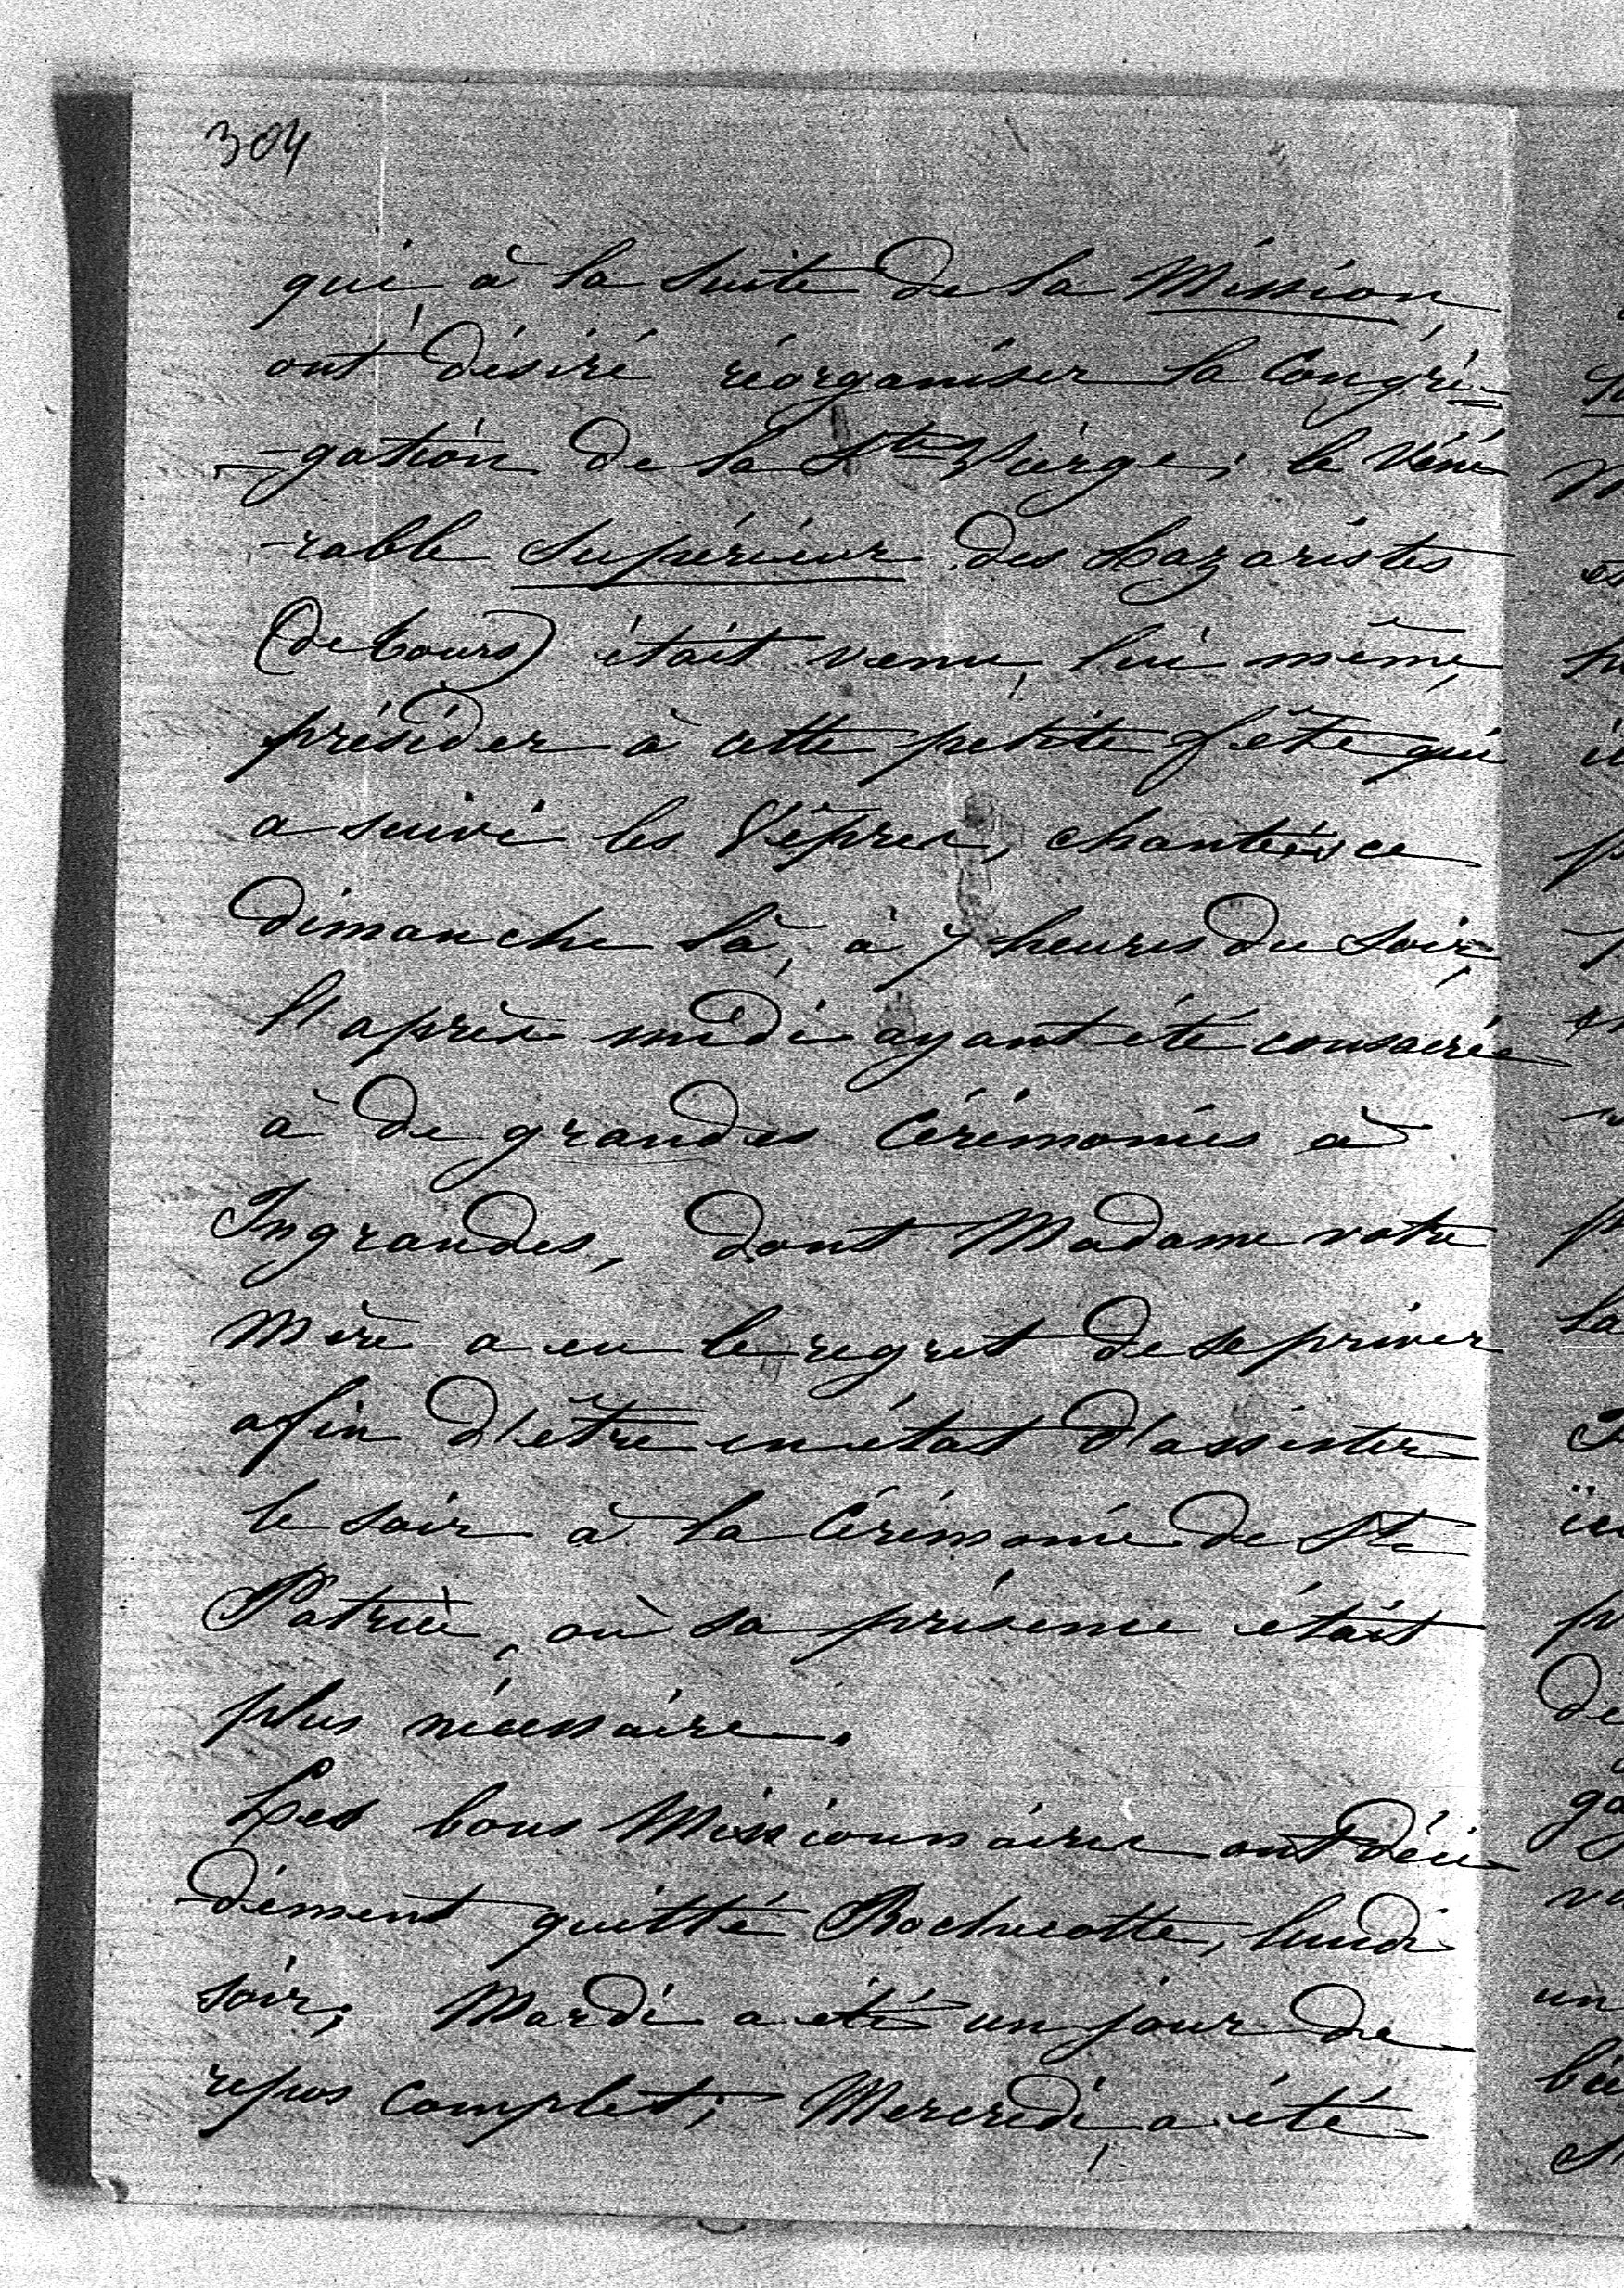 304
qui, à la suite de la Mission,
ont désiré réorganiser la Congré=
=gation de la Ste Vierge; le Véné
-rable Supérieur des Lazaristes
(de Tours) était venu, lui même,
présider à cette petite fête qui
a suivi les Vêpres, chantées ce
Dimanche là, à 7 heures du soir,
l'après midi ayant été consacrée
à de grandes Cérémonies à
Ingrandes, dont Madame votre
Mère a eu le regret de se priver
afin d'être en état d'assister
le soir à la Cérémonie de St
Patrice, où sa présence était
plus nécessaire.
Les bons Missionnaires ont déci-
-dément quitté Rochecotte, lundi
soir; Mardi a été un jour de
repos complet; Mercredi, a été